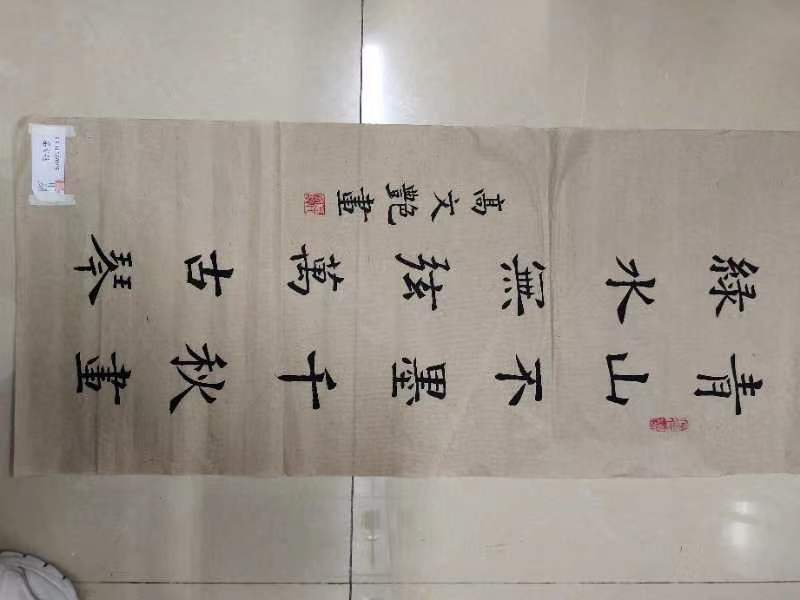 青山不墨千秋畫
綠水無弦萬古琴
高文艷書